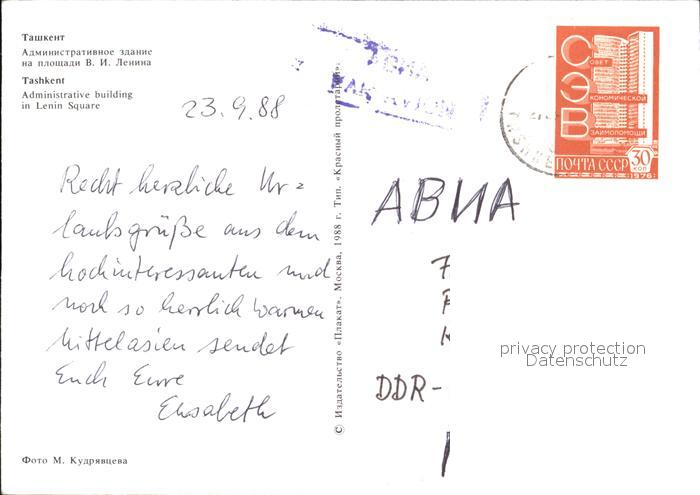 Ташкент
Административное здание
на площади В. И. Ленина
Tashkent
Administrative building
in Lenin Square
23.9.88
Recht herzliche Ur=
laubsgrüße aus dem
hochinteressanten und
noch so herrlich warmen
Mittelasien sendet
Euch Eure
Elisabeth
Фото М. Кудрявцева
© Издательство «Плакат». Москва, 1988 г. Тип. «Красный пролетарий».
СОВЕТ
ЭКОНОМИЧЕСКОЙ
ВЗАИМОПОМОЩИ
ПОЧТА СССР
30
КОП
1976
АВИА
DDR-
privacy protection
Datenschutz